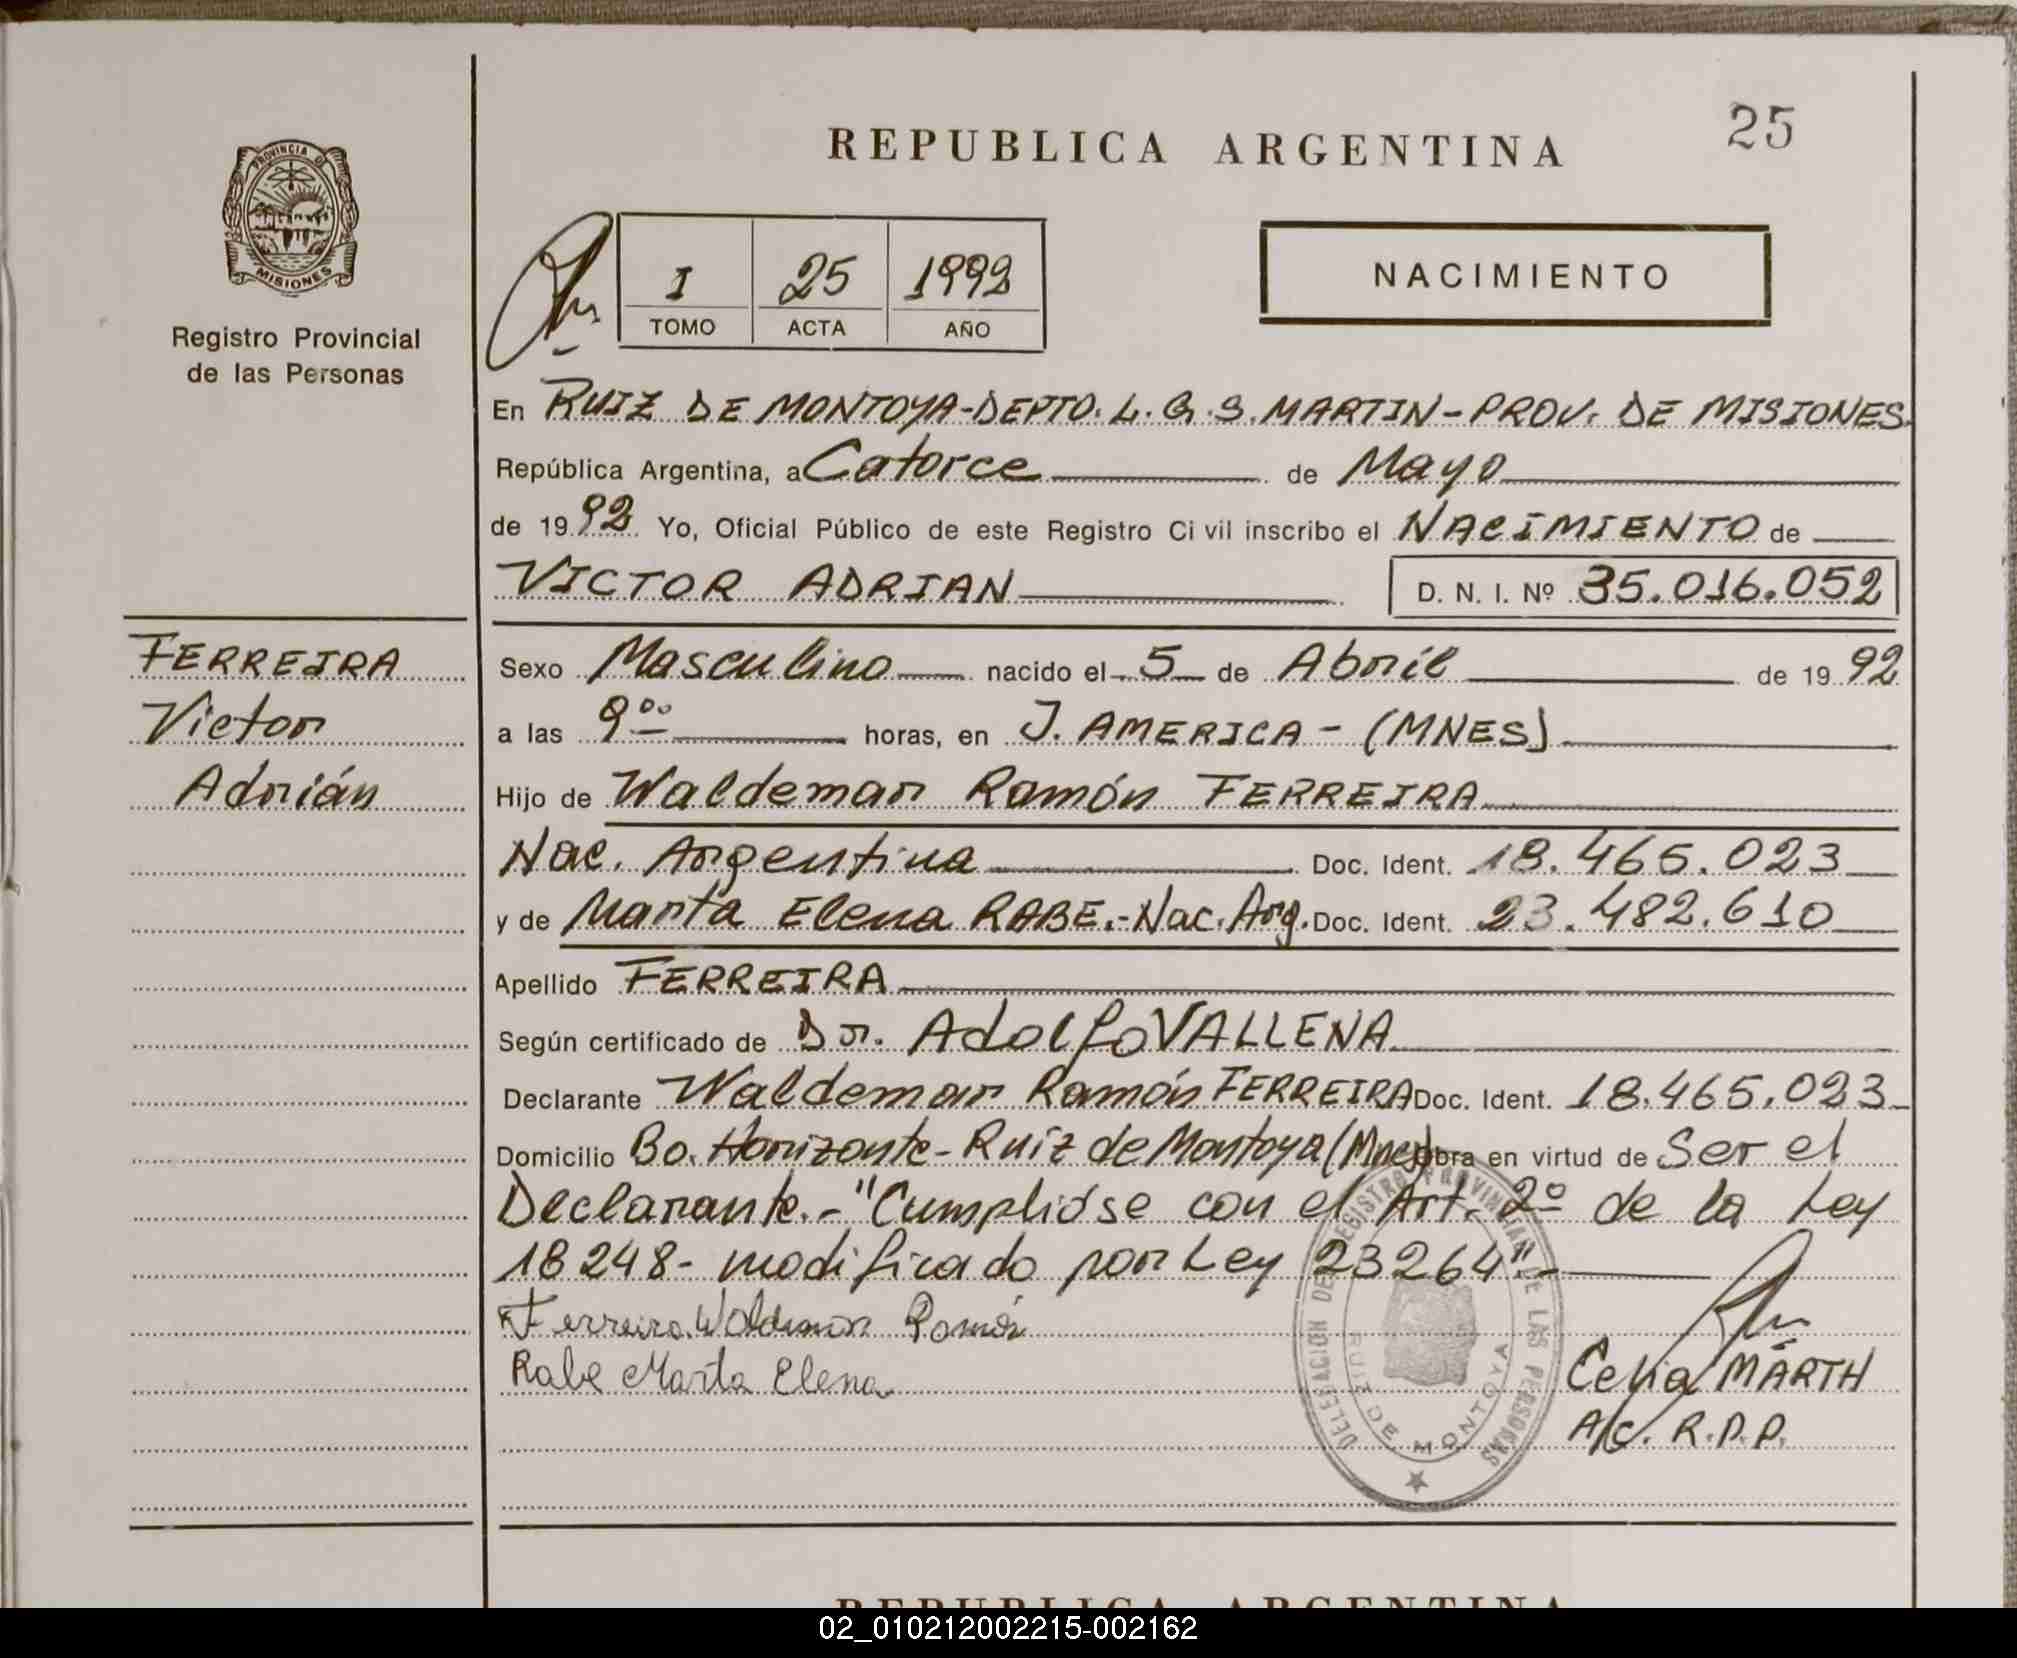 25
REPUBLICA ARGENTINA
PROVINCIA DE
MISIONES
Registro Provincial
de las Personas
I 25 1992
TOMO ACTA AÑO
NACIMIENTO
En RUIZ DE MONTOYA-DEPTO. L. G. S. MARTIN-PROV. DE MISIONES.
República Argentina, a Catorce de Mayo
de 1992 Yo, Oficial Público de este Registro Civil inscribo el NACIMIENTO de
VICTOR ADRIAN D. N. I. Nº 35.016.052
FERREIRA
Victor
Adrián
Sexo Masculino nacido el 5 de Abril de 1992
a las 9⁰⁰ horas, en J. AMERICA - (MNES)
Hijo de Waldemar Ramón FERREIRA
Nac. Argentina Doc. Ident. 18.465.023
y de Marta Elena RABE.-Nac. Arg. Doc. Ident. 23.482.610
Apellido FERREIRA
Según certificado de Dr. Adolfo VALLENA
Declarante Waldemar Ramón FERREIRA Doc. Ident. 18.465.023
Domicilio Bo. Horizonte-Ruiz de Montoya (Mnes) obra en virtud de Ser el
Declarante.-"Cumplióse con el Art. 2º de la Ley
18248- modificado por Ley 23264"-
Ferreira Waldemar Ramón
Rabe Marta Elena
Celia MARTH
A/C. R.P.P.
DELEGACION DEL REGISTRO PROVINCIAL DE LAS PERSONAS
RUIZ DE MONTOYA
REPUBLICA ARGENTINA
02_010212002215-002162